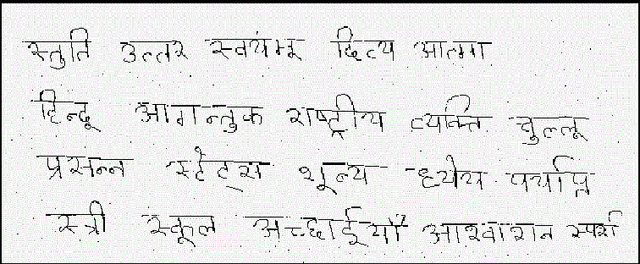 स्तुति उत्तर स्वयंभू दिव्य आत्मा
हिन्दू आगन्तुक राष्ट्रीय व्यक्ति चुल्लू
प्रसन्न स्टेट्स शून्य ध्येय पर्याप्त
स्त्री स्कूल अच्छाईयाँ आश्वाशन स्पर्श